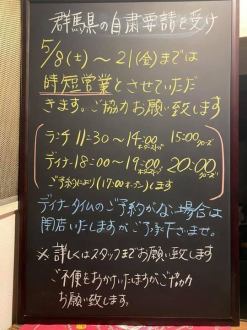 群馬県の自粛要請を受け
5/8(土)～21(金)までは
時短営業とさせていただ
きます。ご協力お願い致します
ランチ 11:30～14:00 15:00
ディナー 18:00～19:00 20:00
ご予約により(17:00オープン)します
ディナータイムのご予約がない場合は
閉店いたしますがご了承下さいませ。
※詳しくはスタッフまでお願い致します
ご不便をおかけいたしますがご協力
お願い致します。